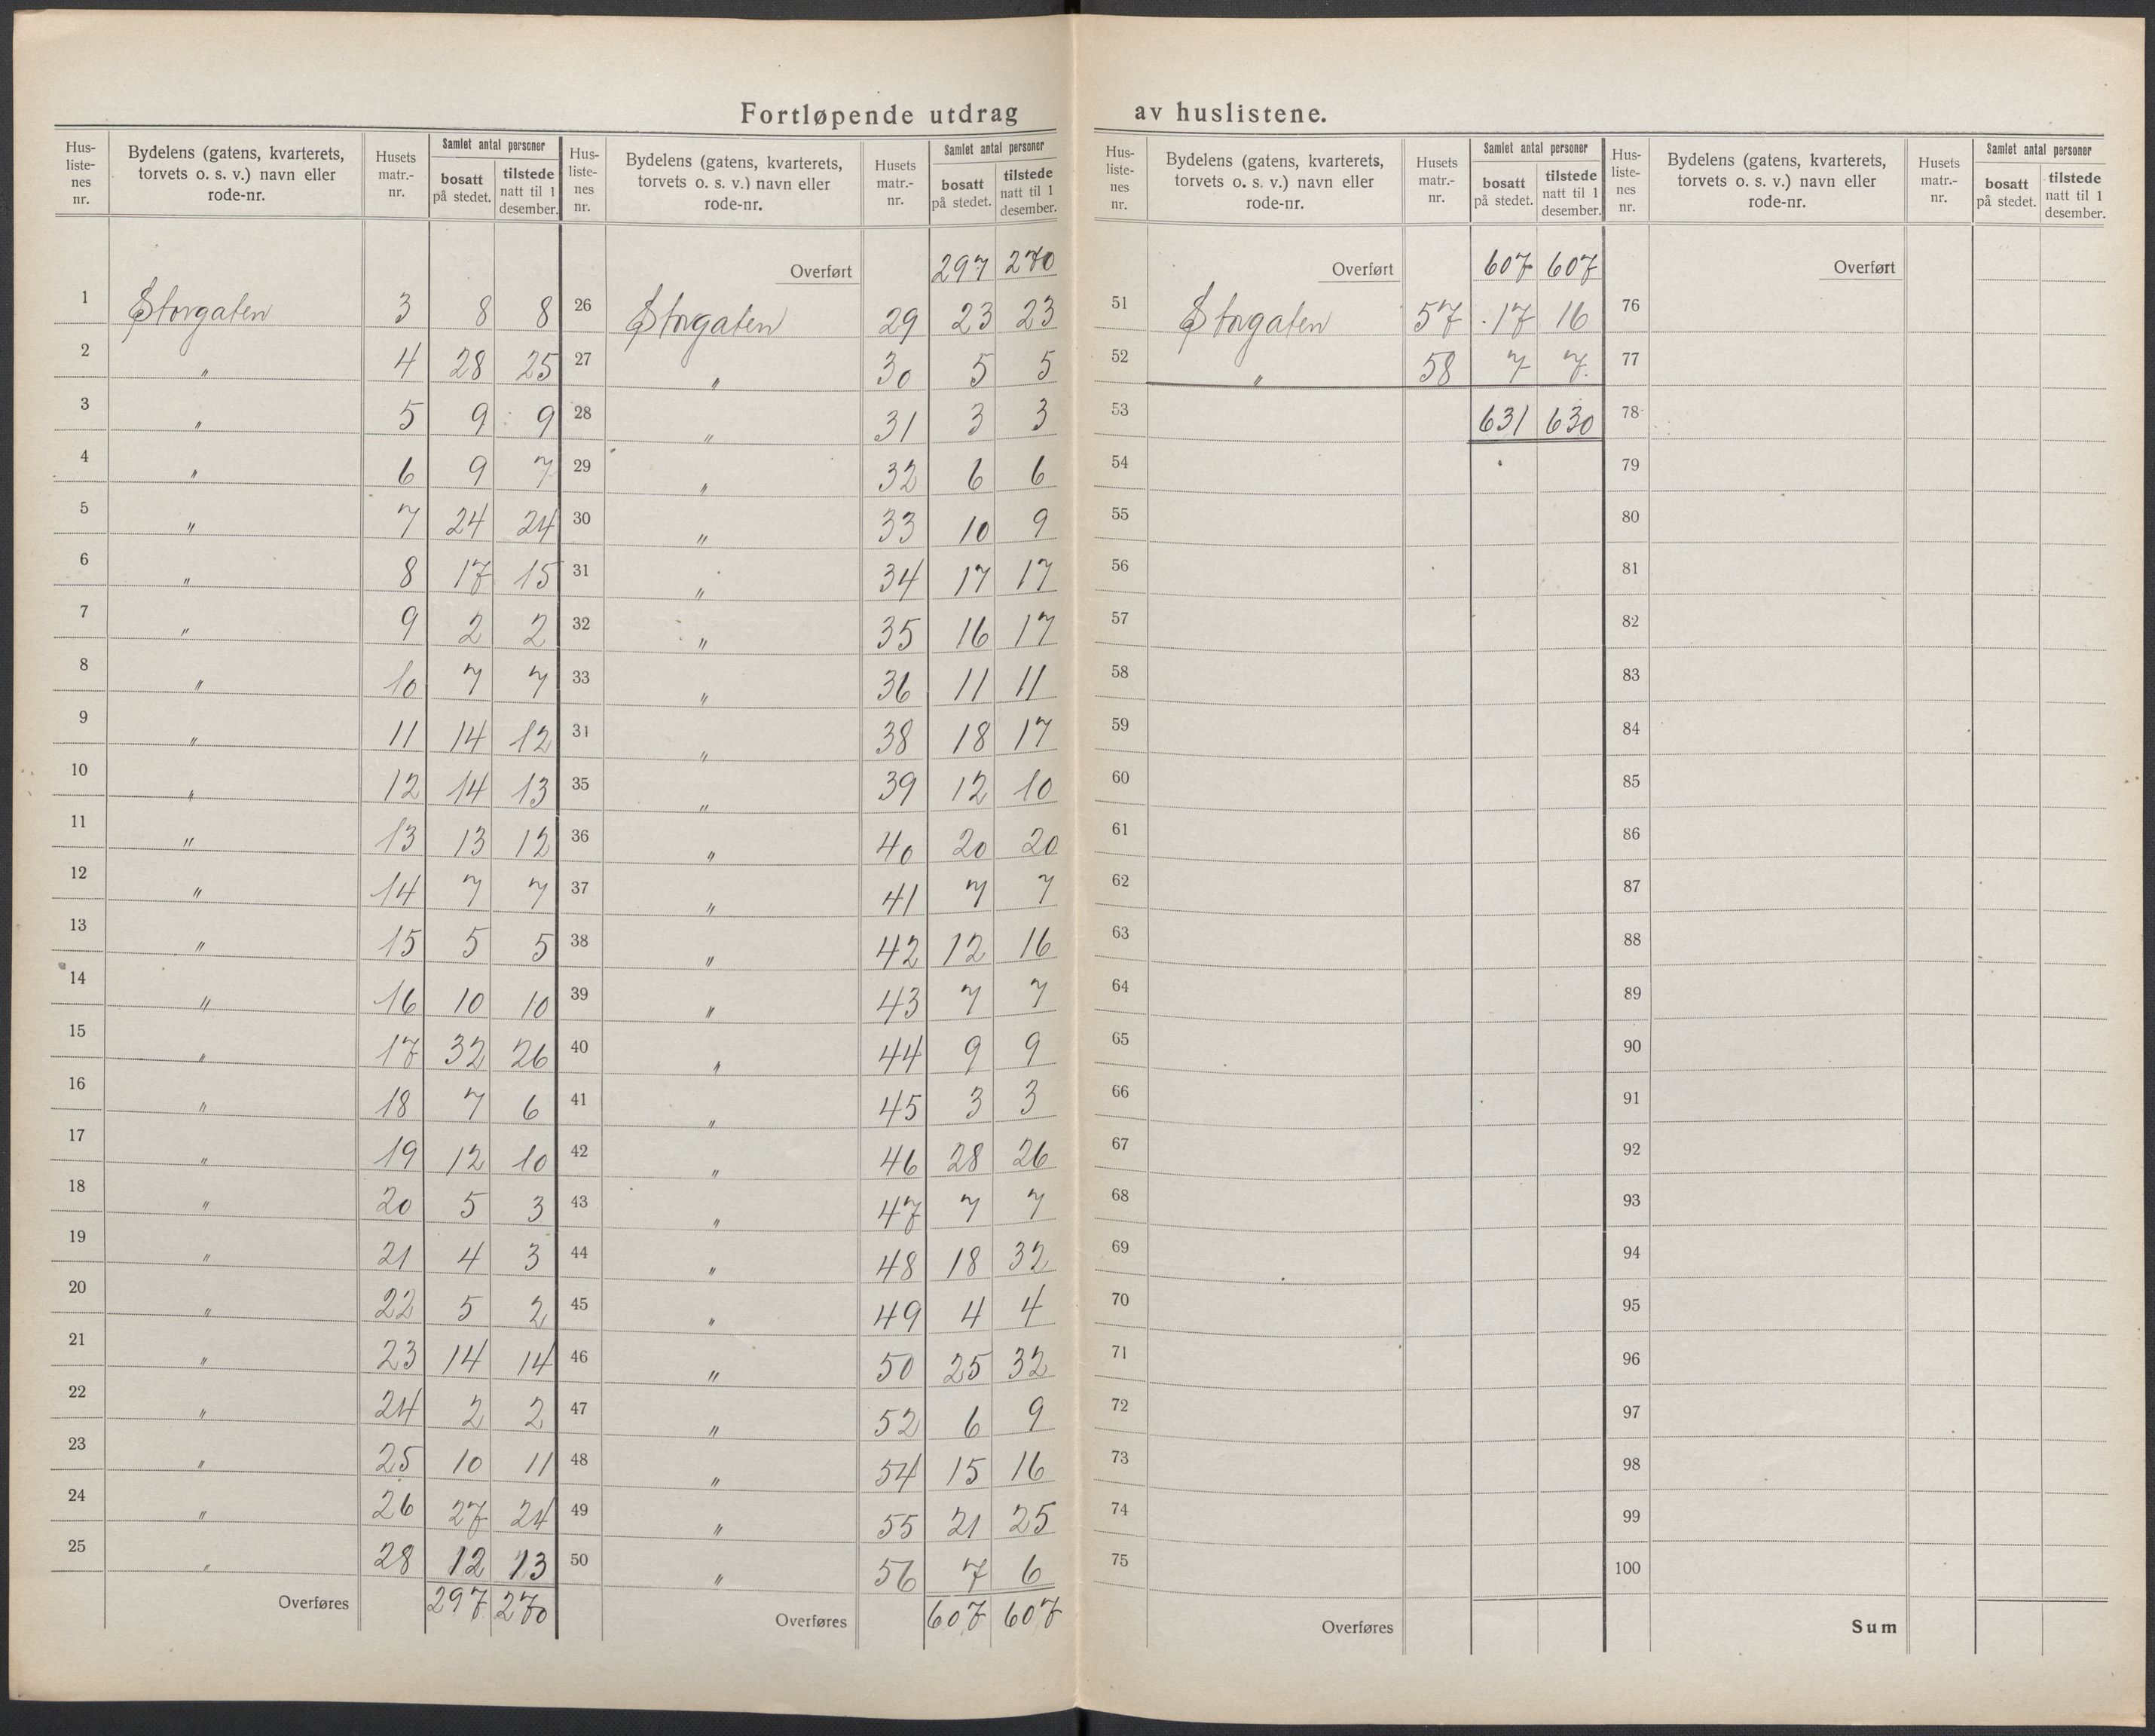 Fortløpende utdrag av huslistene.
Hus-liste-nes nr. | Bydelens (gatens, kvarterets, torvets o. s. v.) navn eller rode-nr. | Husets matr.-nr. | Samlet antal personer bosatt på stedet. | tilstede natt til 1 desember.
1 Storgaten 3 8 8
2 " 4 28 25
3 " 5 9 9
4 " 6 9 7
5 " 7 24 24
6 " 8 17 15
7 " 9 2 2
8 " 10 7 7
9 " 11 14 12
10 " 12 14 13
11 " 13 13 12
12 " 14 7 7
13 " 15 5 5
14 " 16 10 10
15 " 17 32 26
16 " 18 7 6
17 " 19 12 10
18 " 20 5 3
19 " 21 4 3
20 " 22 5 2
21 " 23 14 14
22 " 24 2 2
23 " 25 10 11
24 " 26 27 24
25 " 28 12 13
Overføres 297 270
Hus-liste-nes nr. | Bydelens (gatens, kvarterets, torvets o. s. v.) navn eller rode-nr. | Husets matr.-nr. | Samlet antal personer bosatt på stedet. | tilstede natt til 1 desember.
Overført 297 270
26 Storgaten 29 23 23
27 " 30 5 5
28 " 31 3 3
29 " 32 6 6
30 " 33 10 9
31 " 34 17 17
32 " 35 16 17
33 " 36 11 11
31 " 38 18 17
35 " 39 12 10
36 " 40 20 20
37 " 41 7 7
38 " 42 12 16
39 " 43 7 7
40 " 44 9 9
41 " 45 3 3
42 " 46 28 26
43 " 47 7 7
44 " 48 18 32
45 " 49 4 4
46 " 50 25 32
47 " 52 6 9
48 " 54 15 16
49 " 55 21 25
50 " 56 7 6
Overføres 607 607
Hus-liste-nes nr. | Bydelens (gatens, kvarterets, torvets o. s. v.) navn eller rode-nr. | Husets matr.-nr. | Samlet antal personer bosatt på stedet. | tilstede natt til 1 desember.
Overført 607 607
51 Storgaten 57 17 16
52 " 58 7 7.
53 631 630
54
55
56
57
58
59
60
61
62
63
64
65
66
67
68
69
70
71
72
73
74
75
Overføres
Hus-liste-nes nr. | Bydelens (gatens, kvarterets, torvets o. s. v.) navn eller rode-nr. | Husets matr.-nr. | Samlet antal personer bosatt på stedet. | tilstede natt til 1 desember.
Overført
76
77
78
79
80
81
82
83
84
85
86
87
88
89
90
91
92
93
94
95
96
97
98
99
100
Sum